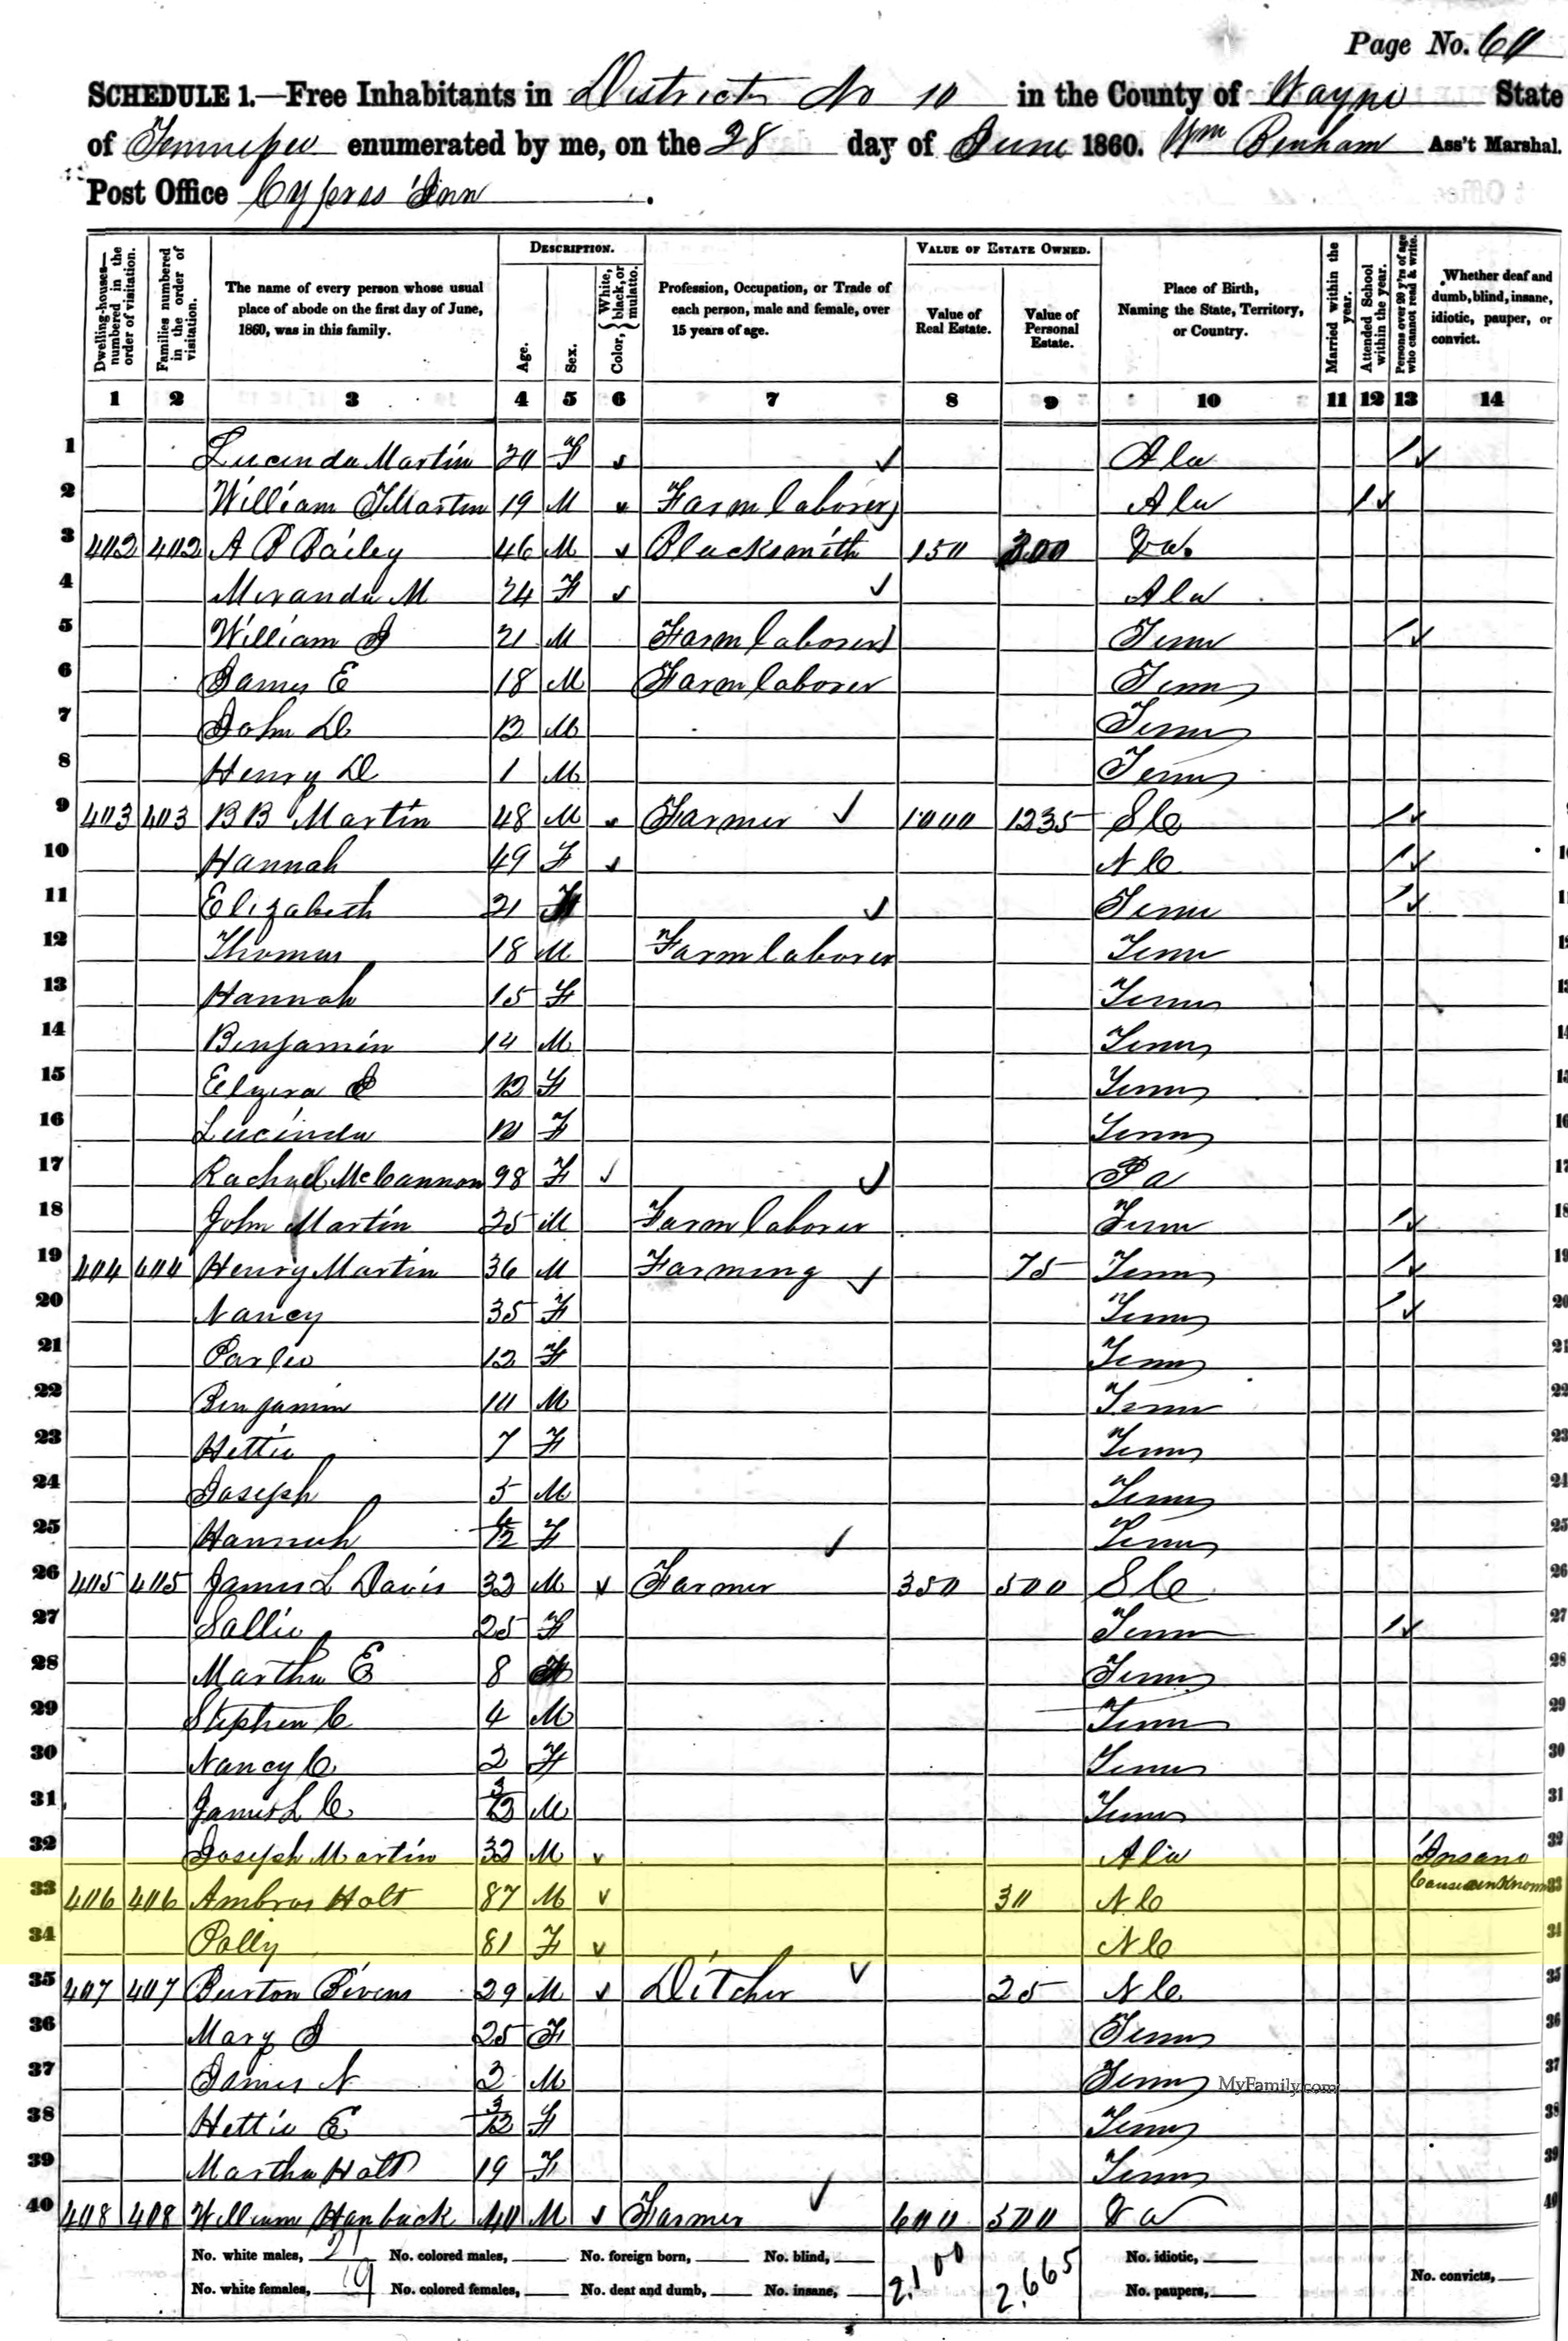 Page No. 60
SCHEDULE 1.—Free Inhabitants in District No 10 in the County of Wayne State
of Tennessee enumerated by me, on the 28 day of June 1860. Wm Benham Ass't Marshal.
Post Office Cypress Inn.
Dwelling-houses—numbered in the order of visitation.
Families numbered in the order of visitation.
The name of every person whose usual place of abode on the first day of June, 1860, was in this family.
DESCRIPTION.
Age.
Sex.
Color, White, black, or mulatto.
Profession, Occupation, or Trade of each person, male and female, over 15 years of age.
VALUE OF ESTATE OWNED.
Value of Real Estate.
Value of Personal Estate.
Place of Birth, Naming the State, Territory, or Country.
Married within the year.
Attended School within the year.
Persons over 20 y'rs of age who cannot read & write.
Whether deaf and dumb, blind, insane, idiotic, pauper, or convict.
1 2 3 4 5 6 7 8 9 10 11 12 13 14
1 Lucinda Martin 20 F Ala /
2 William J Martin 19 M Farm laborer Ala /
3 402 402 A B Bailey 46 M Blacksmith 150 300 Va.
4 Miranda M 24 F Ala
5 William J 21 M Farm laborer Tenn /
6 James E 18 M Farm laborer Tenn
7 John D 12 M Tenn
8 Henry D 1 M Tenn
9 403 403 B B Martin 48 M Farmer 1000 1235 S C /
10 Hannah 49 F N C /
11 Elizabeth 21 F Tenn /
12 Thomas 18 M Farm laborer Tenn
13 Hannah 15 F Tenn
14 Benjamin 14 M Tenn
15 Elzira J 12 F Tenn
16 Lucinda 10 F Tenn
17 Rachael McCannon 98 F Pa
18 John Martin 25 M Farm laborer Tenn /
19 404 404 Henry Martin 36 M Farming 75 Tenn /
20 Nancy 35 F Tenn /
21 12 F Tenn
22 Benjamin 10 M Tenn
23 Hettie 7 F Tenn
24 Joseph 5 M Tenn
25 Hannah 6/12 F Tenn
26 405 405 James L Davis 32 M Farmer 350 500 S C
27 Sallie 25 F Tenn /
28 Martha E 8 F Tenn
29 Stephen C 4 M Tenn
30 Nancy C 2 F Tenn
31 James L C 3/12 M Tenn
32 Joseph Martin 32 M Ala Insane
Cause unknown
33 406 406 Ambros Holt 87 M 30 N C
34 Polly 81 F N C
35 407 407 Burton Bivens 29 M Ditcher 25 N C
36 Mary J 25 F Tenn
37 James N 2 M Tenn
38 Hettie E 3/12 F Tenn
39 Martha Holt 19 F Tenn
40 408 408 William Hanback 40 M Farmer 600 500 Va
MyFamily.com
No. white males, 21 No. colored males, No. foreign born, No. blind, 2,100 2,665 No. idiotic,
No. white females, 19 No. colored females, No. deaf and dumb, No. insane, No. paupers, No. convicts,